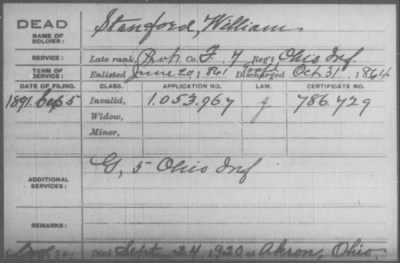 DEAD
NAME OF SOLDIER:
Stanford, William
SERVICE:
Late rank, Co. F, 7 Reg't Ohio Inf
TERM OF SERVICE:
Enlisted June 20, 1861 Discharged Oct 31, 1864
DATE OF FILING. CLASS. APPLICATION NO. LAW. CERTIFICATE NO.
1891 Sep 5 Invalid, 1.053.967 786.729
Widow,
Minor,
ADDITIONAL SERVICES:
G, 5 Ohio Inf
REMARKS:
Died Sept 24, 1920 at Akron, Ohio